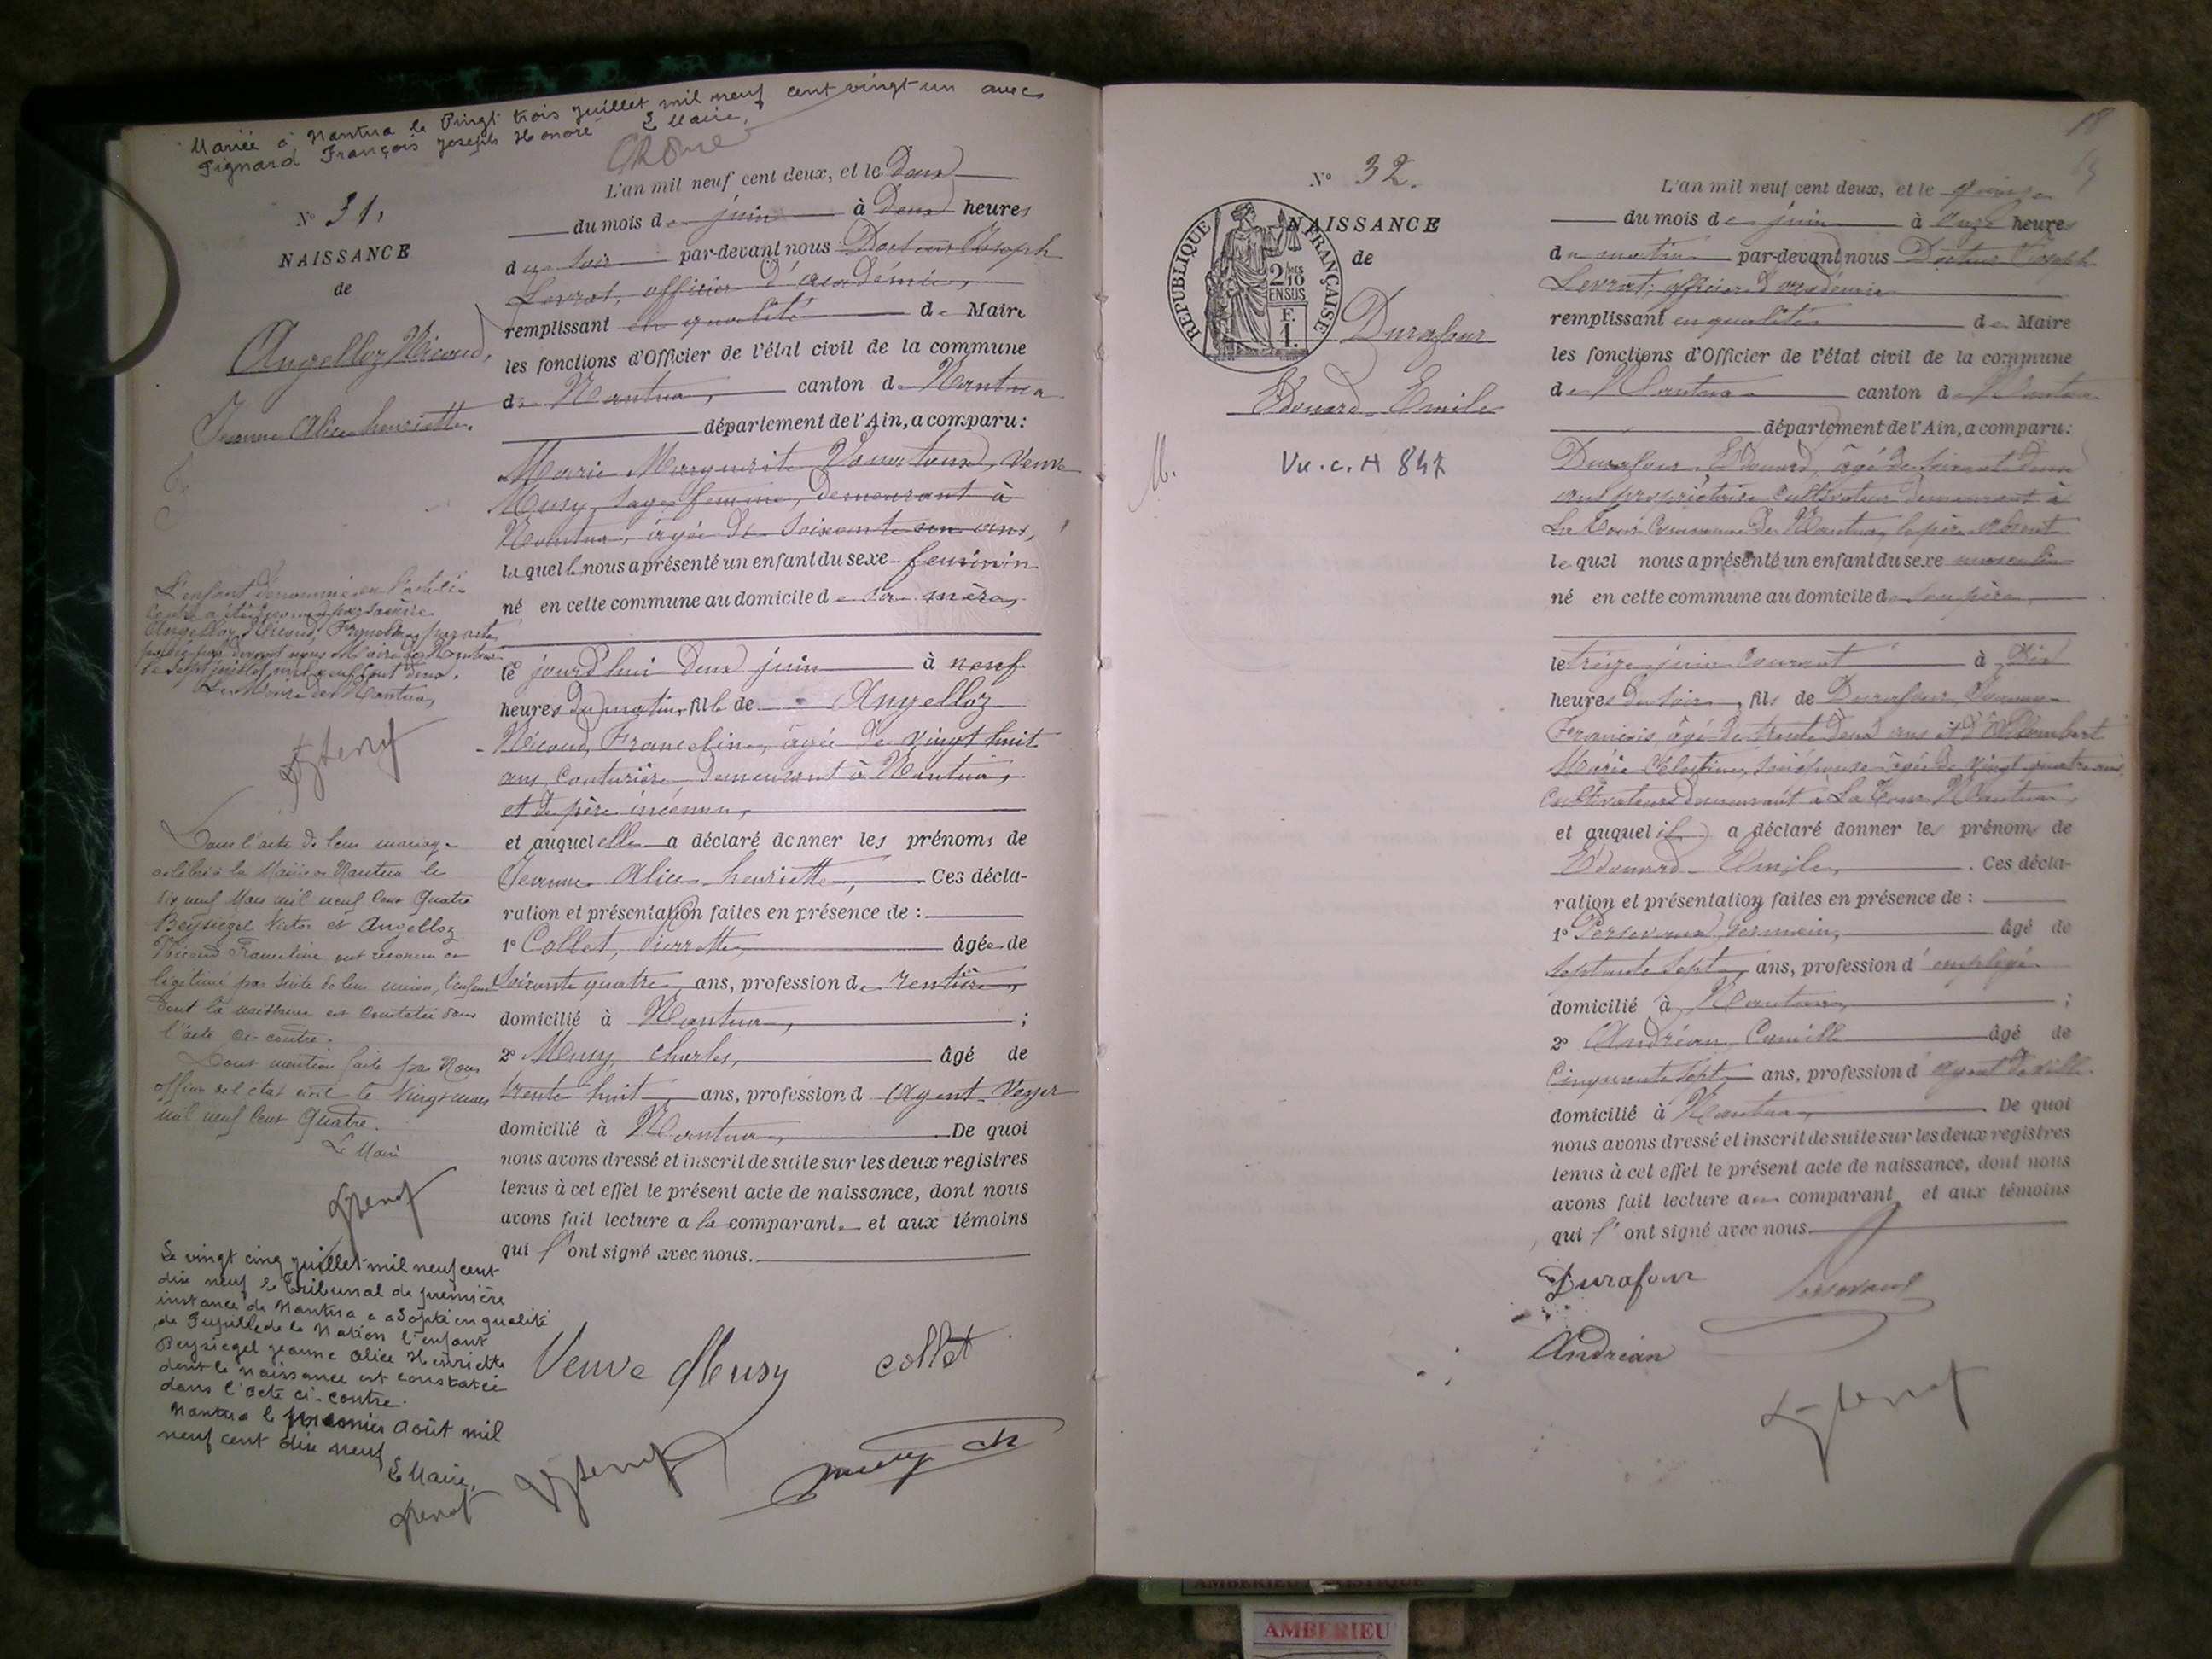 Mariée à Nantua le Vingt trois juillet mil neuf cent vingt-un avec
Pignard François Joseph Honoré Le Maire,
N° 31,
NAISSANCE
de
Angelloz Nicoud,
Jeanne Alice henriette.
L'enfant dénommé en l'acte ci-
contre a été reconnu par sa mère
Angelloz Nicoud Franceline par acte
passé par devant nous Maire de Nantua
le sept juillet mil neuf cent deux.
Le Maire de Nantua,
Dans l'acte de leur mariage
célébré à la Mairie de Nantua le
dix neuf Mars mil neuf cent quatre
Beysiegel Victor et Angelloz
Nicoud Franceline ont reconnu et
légitimé par suite de leur union, l'enfant
dont la naissance est constatée dans
l'acte ci-contre.
Dont mention faite par Nous
officier de l'état civil le Vingt mars
mil neuf cent Quatre.
Le Maire
Le vingt cinq juillet mil neuf cent
dix neuf le Tribunal de première
instance de Nantua a adopté en qualité
de Pupille de la Nation l'enfant
Beysiegel Jeanne Alice Henriette
dont la naissance est constatée
dans l'acte ci-contre.
Nantua le premier Août mil
neuf cent dix neuf
Le Maire,
L'an mil neuf cent deux, et le Deux
du mois de juin à Deux heures
du soir par-devant nous Docteur Joseph
Levrat, officier d'académie,
remplissant en qualité de Maire
les fonctions d'Officier de l'état civil de la commune
de Nantua, canton de Nantua
département de l'Ain, a comparu:
Marie Marguerite Veuve
Musy, sage femme, demeurant à
Nantua, âgée de soixante un ans,
laquelle nous a présenté un enfant du sexe féminin
né en cette commune au domicile de sa mère,
ce jourd'hui deux juin à neuf
heures du matin, fille de Angelloz
Nicoud, Franceline, âgée de vingt huit
ans, couturière, demeurant à Nantua,
et de père inconnu,
et auquel elle a déclaré donner les prénoms de
Jeanne Alice henriette, Ces décla-
ration et présentation faites en présence de :
1° Collet, Pierrette, âgée de
soixante quatre ans, profession de rentière,
domicilié à Nantua, ;
2° Musy, Charles, âgé de
trente huit ans, profession d Agent-Voyer
domicilié à Nantua, De quoi
nous avons dressé et inscrit de suite sur les deux registres
tenus à cet effet le présent acte de naissance, dont nous
avons fait lecture a la comparante et aux témoins
qui l'ont signé avec nous.
Veuve Musy collet
Musy Ch
18
N° 32.
NAISSANCE
de
REPUBLIQUE FRANÇAISE
2/10
EN SUS
F.
1.
Durafour
Edouard Emile
M.
Vu.c.H 847
L'an mil neuf cent deux, et le quinze
du mois de juin à onze heures
du matin par-devant nous Docteur Joseph
Levrat, officier d'académie
remplissant en qualité de Maire
les fonctions d'Officier de l'état civil de la commune
de Nantua canton de Nantua
département de l'Ain, a comparu:
Durafour Edouard, âgé de soixante deux
ans propriétaire cultivateur demeurant à
La Cour commune de Nantua, le père absent
lequel nous a présenté un enfant du sexe masculin
né en cette commune au domicile de son père,
le treize juin courant à dix
heures du soir, fils de Durafour,
François âgé de trente deux ans et d'Allombert
Marie Célestine, son épouse âgée de vingt quatre ans,
cultivateurs demeurant à La Cour Nantua,
et auquel il a déclaré donner les prénoms de
Edouard Emile, . Ces décla-
ration et présentation faites en présence de :
1° Germain, âgé de
septante sept ans, profession d'employé
domicilié à Nantua, ;
2° Andréan Camille âgé de
cinquante sept ans, profession d'agent de ville.
domicilié à Nantua, De quoi
nous avons dressé et inscrit de suite sur les deux registres
tenus à cet effet le présent acte de naissance, dont nous
avons fait lecture au comparant et aux témoins
qui l'ont signé avec nous.
Durafour
Andréan
AMBERIEU